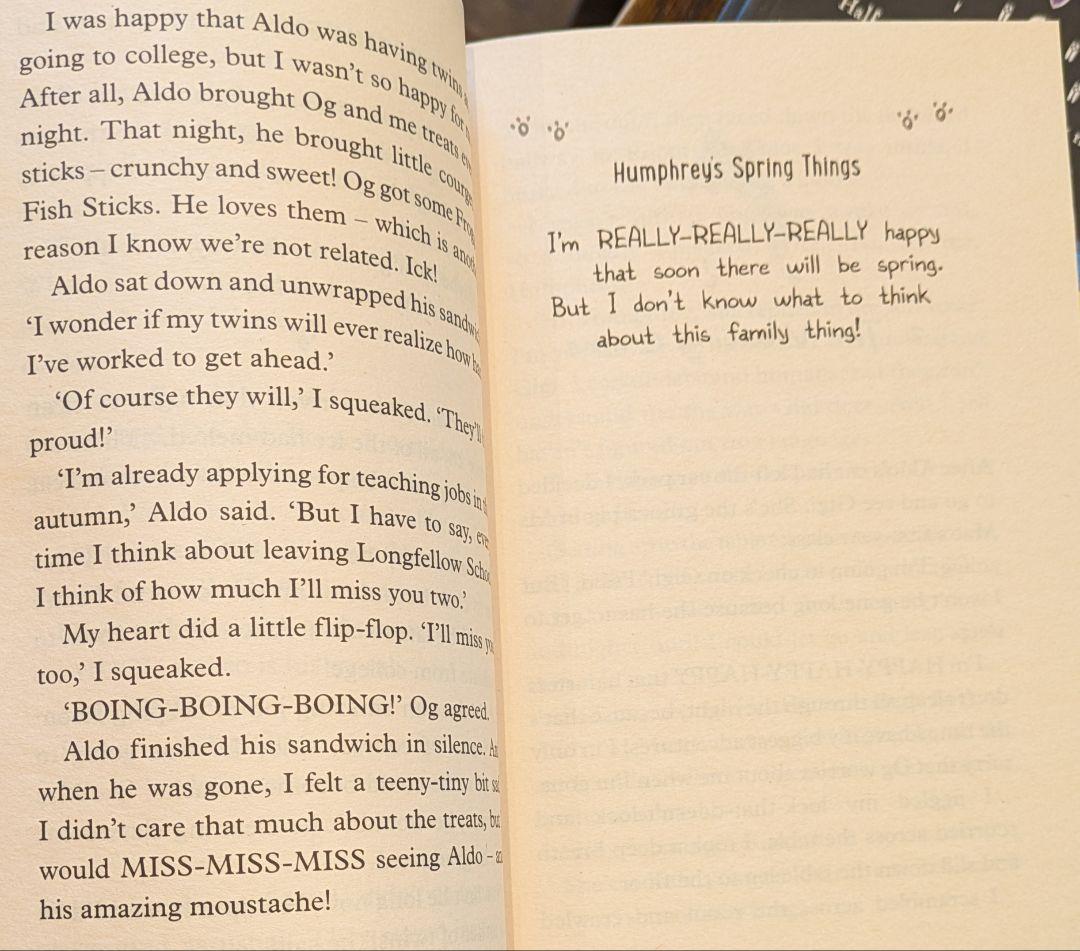 I was happy that Aldo was having twins
going to college, but I wasn't so happy for
After all, Aldo brought Og and me treats
night. That night, he brought little
sticks – crunchy and sweet! Og got some
Fish Sticks. He loves them – which is
reason I know we're not related. Ick!
Aldo sat down and unwrapped his
'I wonder if my twins will ever realize how
I've worked to get ahead.'
'Of course they will,' I squeaked.
proud!'
'I'm already applying for teaching jobs in
autumn,' Aldo said. 'But I have to say,
time I think about leaving Longfellow
I think of how much I'll miss you two.'
My heart did a little flip-flop. 'I'll miss
too,' I squeaked.
'BOING-BOING-BOING!' Og agreed.
Aldo finished his sandwich in silence.
when he was gone, I felt a teeny-tiny bit
I didn't care that much about the treats,
would MISS-MISS-MISS seeing Aldo –
his amazing moustache!
Half
Humphrey's Spring Things
I'm REALLY-REALLY-REALLY happy
that soon there will be spring.
But I don't know what to think
about this family thing!